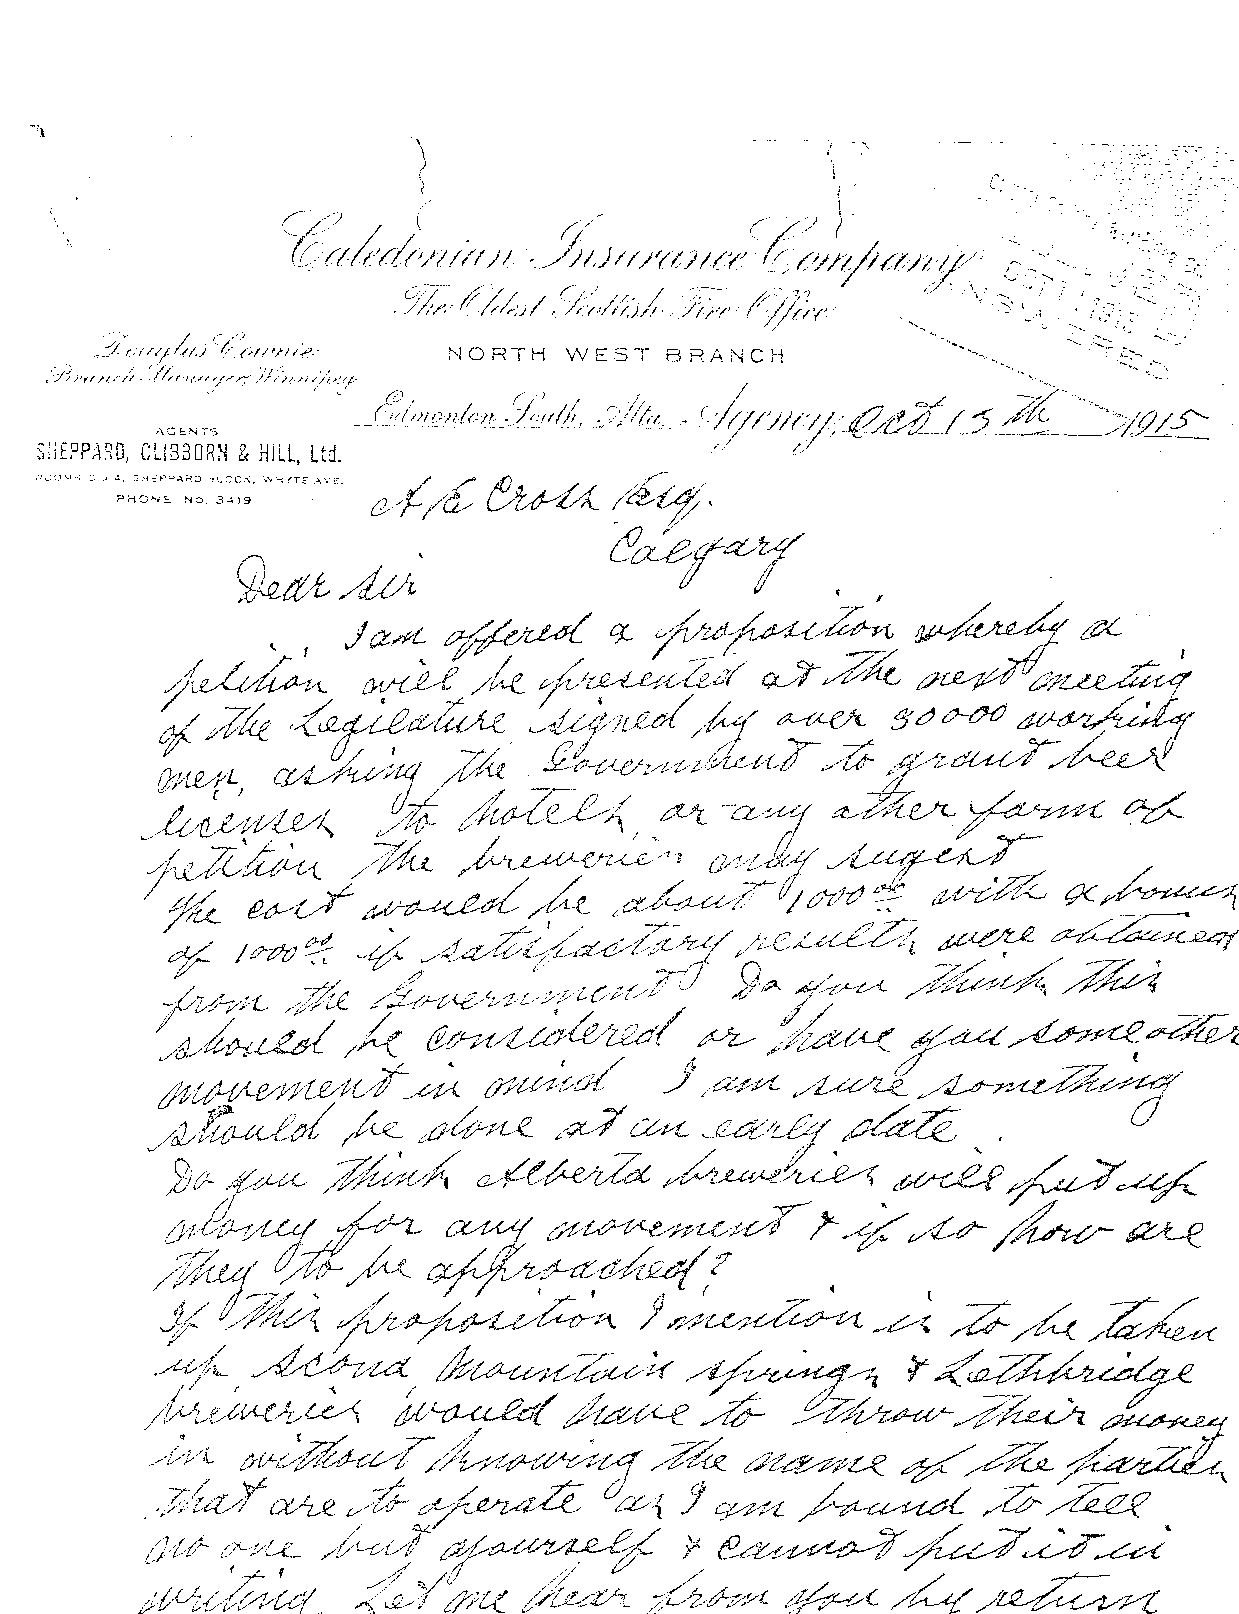 Caledonian Insurance Company
The Oldest Scottish Fire Office
Douglas Cownie
Branch Manager, Winnipeg
NORTH WEST BRANCH
Edmonton South, Alta. Agency, Oct 15th 1915
AGENTS
SHEPPARD, CLIBBORN & HILL, Ltd.
SHEPPARD BLOCK, WHYTE AVE.
PHONE NO. 3419
OCT 1915
ANSWERED
A E Cross Esq.
Calgary
Dear Sir
I am offered a proposition whereby a
petition will be presented at the next meeting
of the Legilature signed by over 30000 working
men, asking the Government to grant beer
licenses to hotels or any other form of
petition the breweries may sugest
The cost would be about 1000 00 with a bonus
of 1000 00 if satisfactory results were obtained
from the Government Do you think this
should be considered or have you some other
movement in mind I am sure something
should be done at an early date
Do you think Alberta breweries will put up
money for any movement & if so how are
they to be approached?
If this proposition I mention is to be taken
up, Mountain springs & Lethbridge
breweries would have to throw their money
in without knowing the name of the parties
that are to operate as I am bound to tell
no one but yourself & cannot put it in
writing. Let me hear from you by return